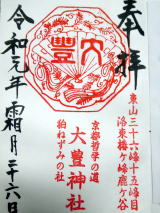 奉拝
東山三十六峰十五峰目
洛東椿ヶ峰鹿ヶ谷
大豊
京都哲学の道
大豊神社
狛ねずみの社
令和元年霜月二六日